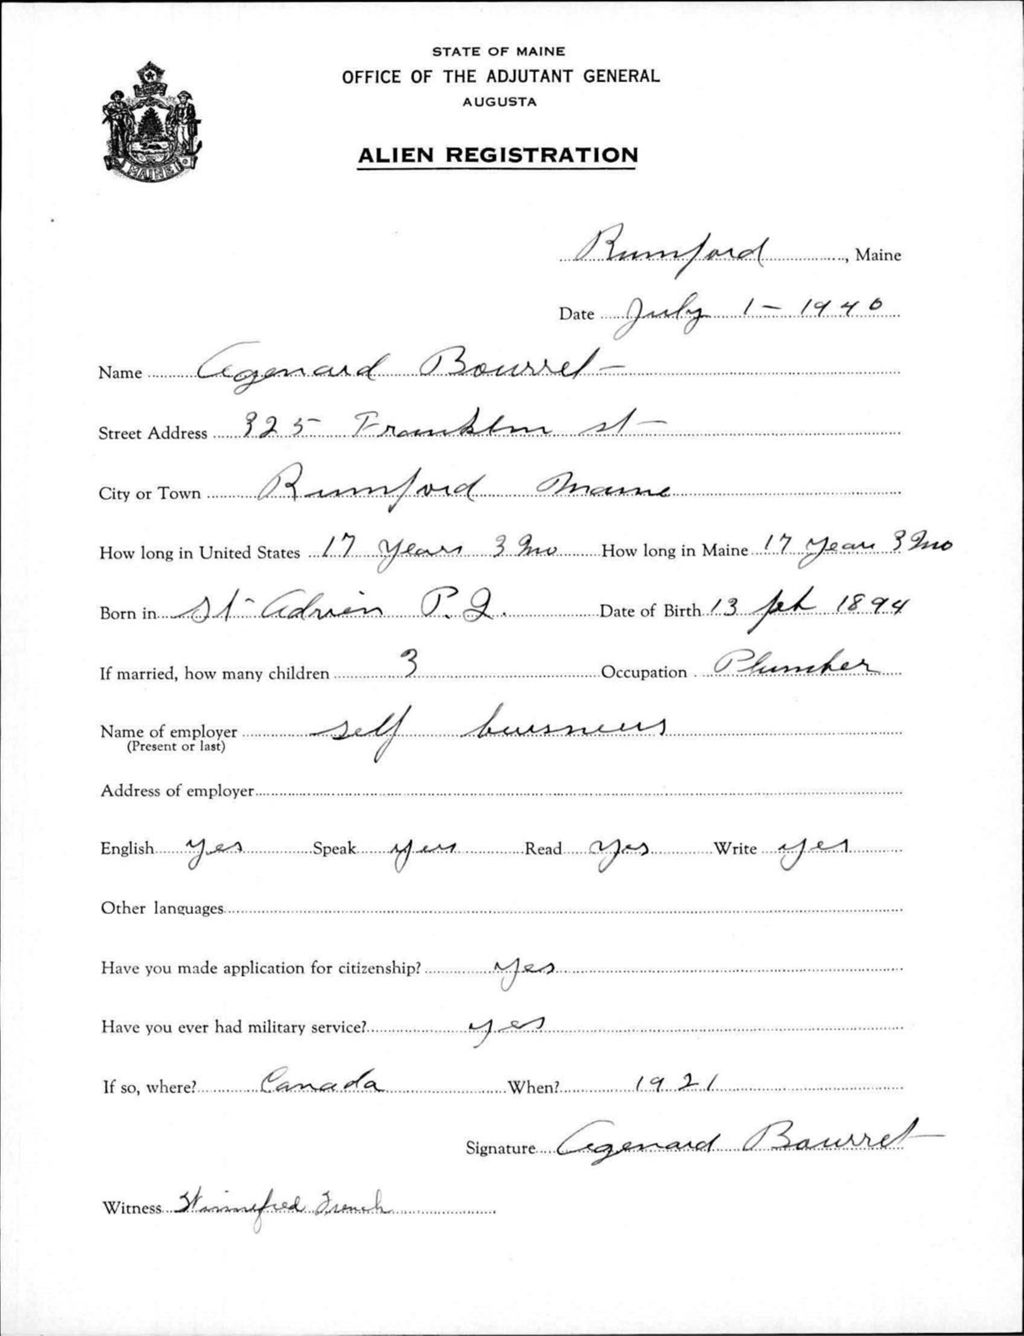 STATE OF MAINE
OFFICE OF THE ADJUTANT GENERAL
AUGUSTA
ALIEN REGISTRATION
MAINE
Rumford, Maine
Date July 1 - 1940
Name Agenard Bourret
Street Address 325 Franklin st
City or Town Rumford Maine
How long in United States 17 years 3 Mo How long in Maine 17 years 3 Mo
Born in St Adrien P.Q. Date of Birth 13 feb 1894
If married, how many children 3 Occupation Plumber
Name of employer self buisneess
(Present or last)
Address of employer
English yes Speak yes Read yes Write yes
Other languages
Have you made application for citizenship? yes
Have you ever had military service? yes
If so, where? Canada When? 1921
Signature Agenard Bourret
Witness Winnifred French